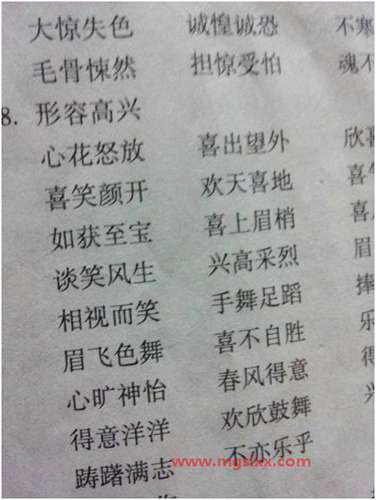 大惊失色 诚惶诚恐 不寒
毛骨悚然 担惊受怕 魂不
8. 形容高兴
心花怒放 喜出望外 欣喜
喜笑颜开 欢天喜地 喜
如获至宝 喜上眉梢 喜
谈笑风生 兴高采烈 眉
相视而笑 手舞足蹈 捧
眉飞色舞 喜不自胜 乐
心旷神怡 春风得意 得
得意洋洋 欢欣鼓舞 兴
踌躇满志 不亦乐乎
www.mgslxx.com